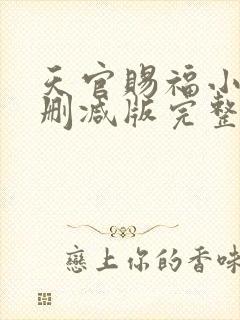 天官賜福小
刪減版完整
戀上你的香味